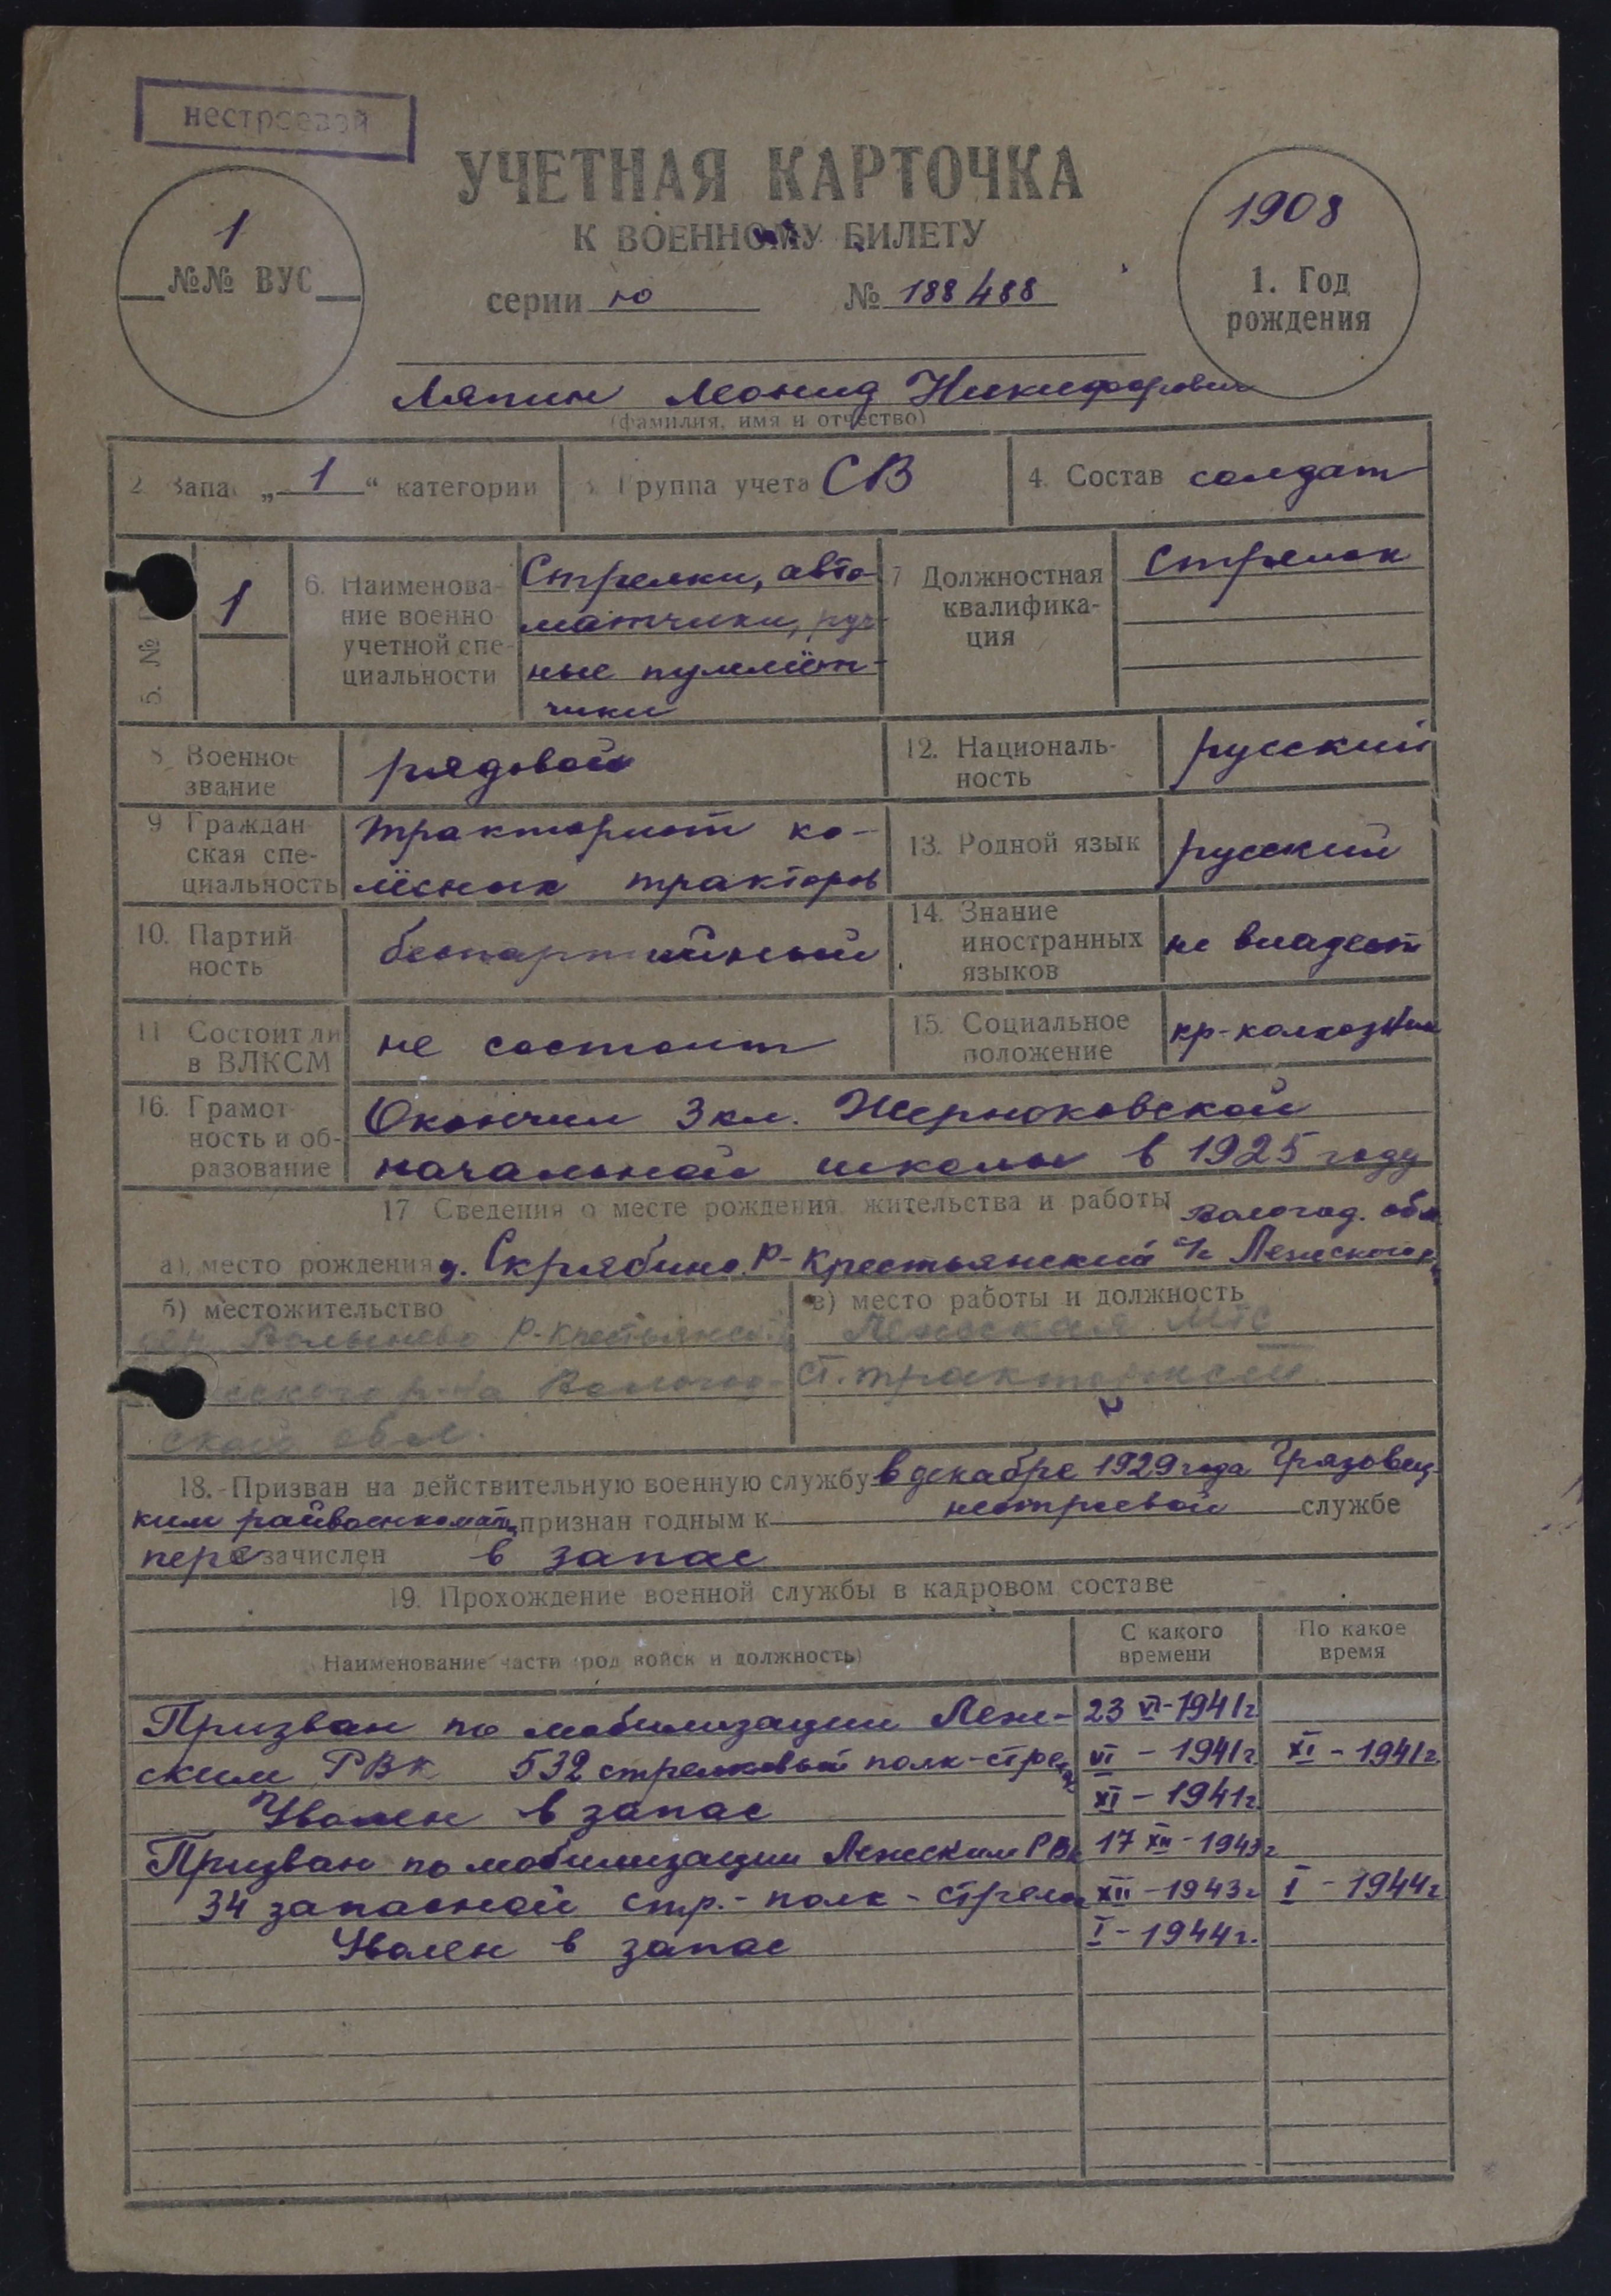 нестроевой
УЧЕТНАЯ КАРТОЧКА
К ВОЕННОМУ БИЛЕТУ
серии ю № 188488
1
№№ ВУС
1908
1. Год
рождения
Ляпин Леонид Никифорович
(фамилия, имя и отчество)
2. Запас „ 1 “ категории
3. Группа учета СВ
4. Состав солдат
5. №
1
6. Наименова-
ние военно
учетной спе-
циальности
Стрелки, авто-
матчики, руч-
ные пулемёт-
чики
7 Должностная
квалифика-
ция
Стрелок
8 Военное
звание
рядовой
12. Националь-
ность
русский
9 Граждан-
ская спе-
циальность
тракторист ко-
лёсных тракторов
13. Родной язык
русский
10. Партий
ность
беспартийный
14. Знание
иностранных
языков
не владеет
11 Состоит ли
в ВЛКСМ
не состоит
15. Социальное
положение
кр-колхозник
16. Грамот-
ность и об-
разование
Окончил 3 кл. Жерноковской
начальной школы в 1925 году
17 Сведения о месте рождения, жительства и работы Вологод. обл
а) место рождения д. Скрябино Р-Крестьянский с/с Лежского р-
б) местожительство
Р-Крестьянск
ского р-на Вологод-
ской обл.
в) место работы и должность
Лежская МТС
ст. тракторист
18. Призван на действительную военную службу в декабре 1929 года Грязовец-
ким райвоенкоматом признан годным к нестроевой службе
пере зачислен в запас
19. Прохождение военной службы в кадровом составе
Наименование части (род войск и должность)
С какого
времени
По какое
время
Призван по мобилизации Леж- 23 VI-1941г.
ским РВК 532 стрелковый полк-стрелок VI - 1941г. XI - 1941г.
Уволен в запас XI - 1941г.
Призван по мобилизации Лежским РВК 17 XII - 1943г
34 запасной стр.- полк - стрелок XII - 1943г I - 1944г
Уволен в запас I - 1944г.